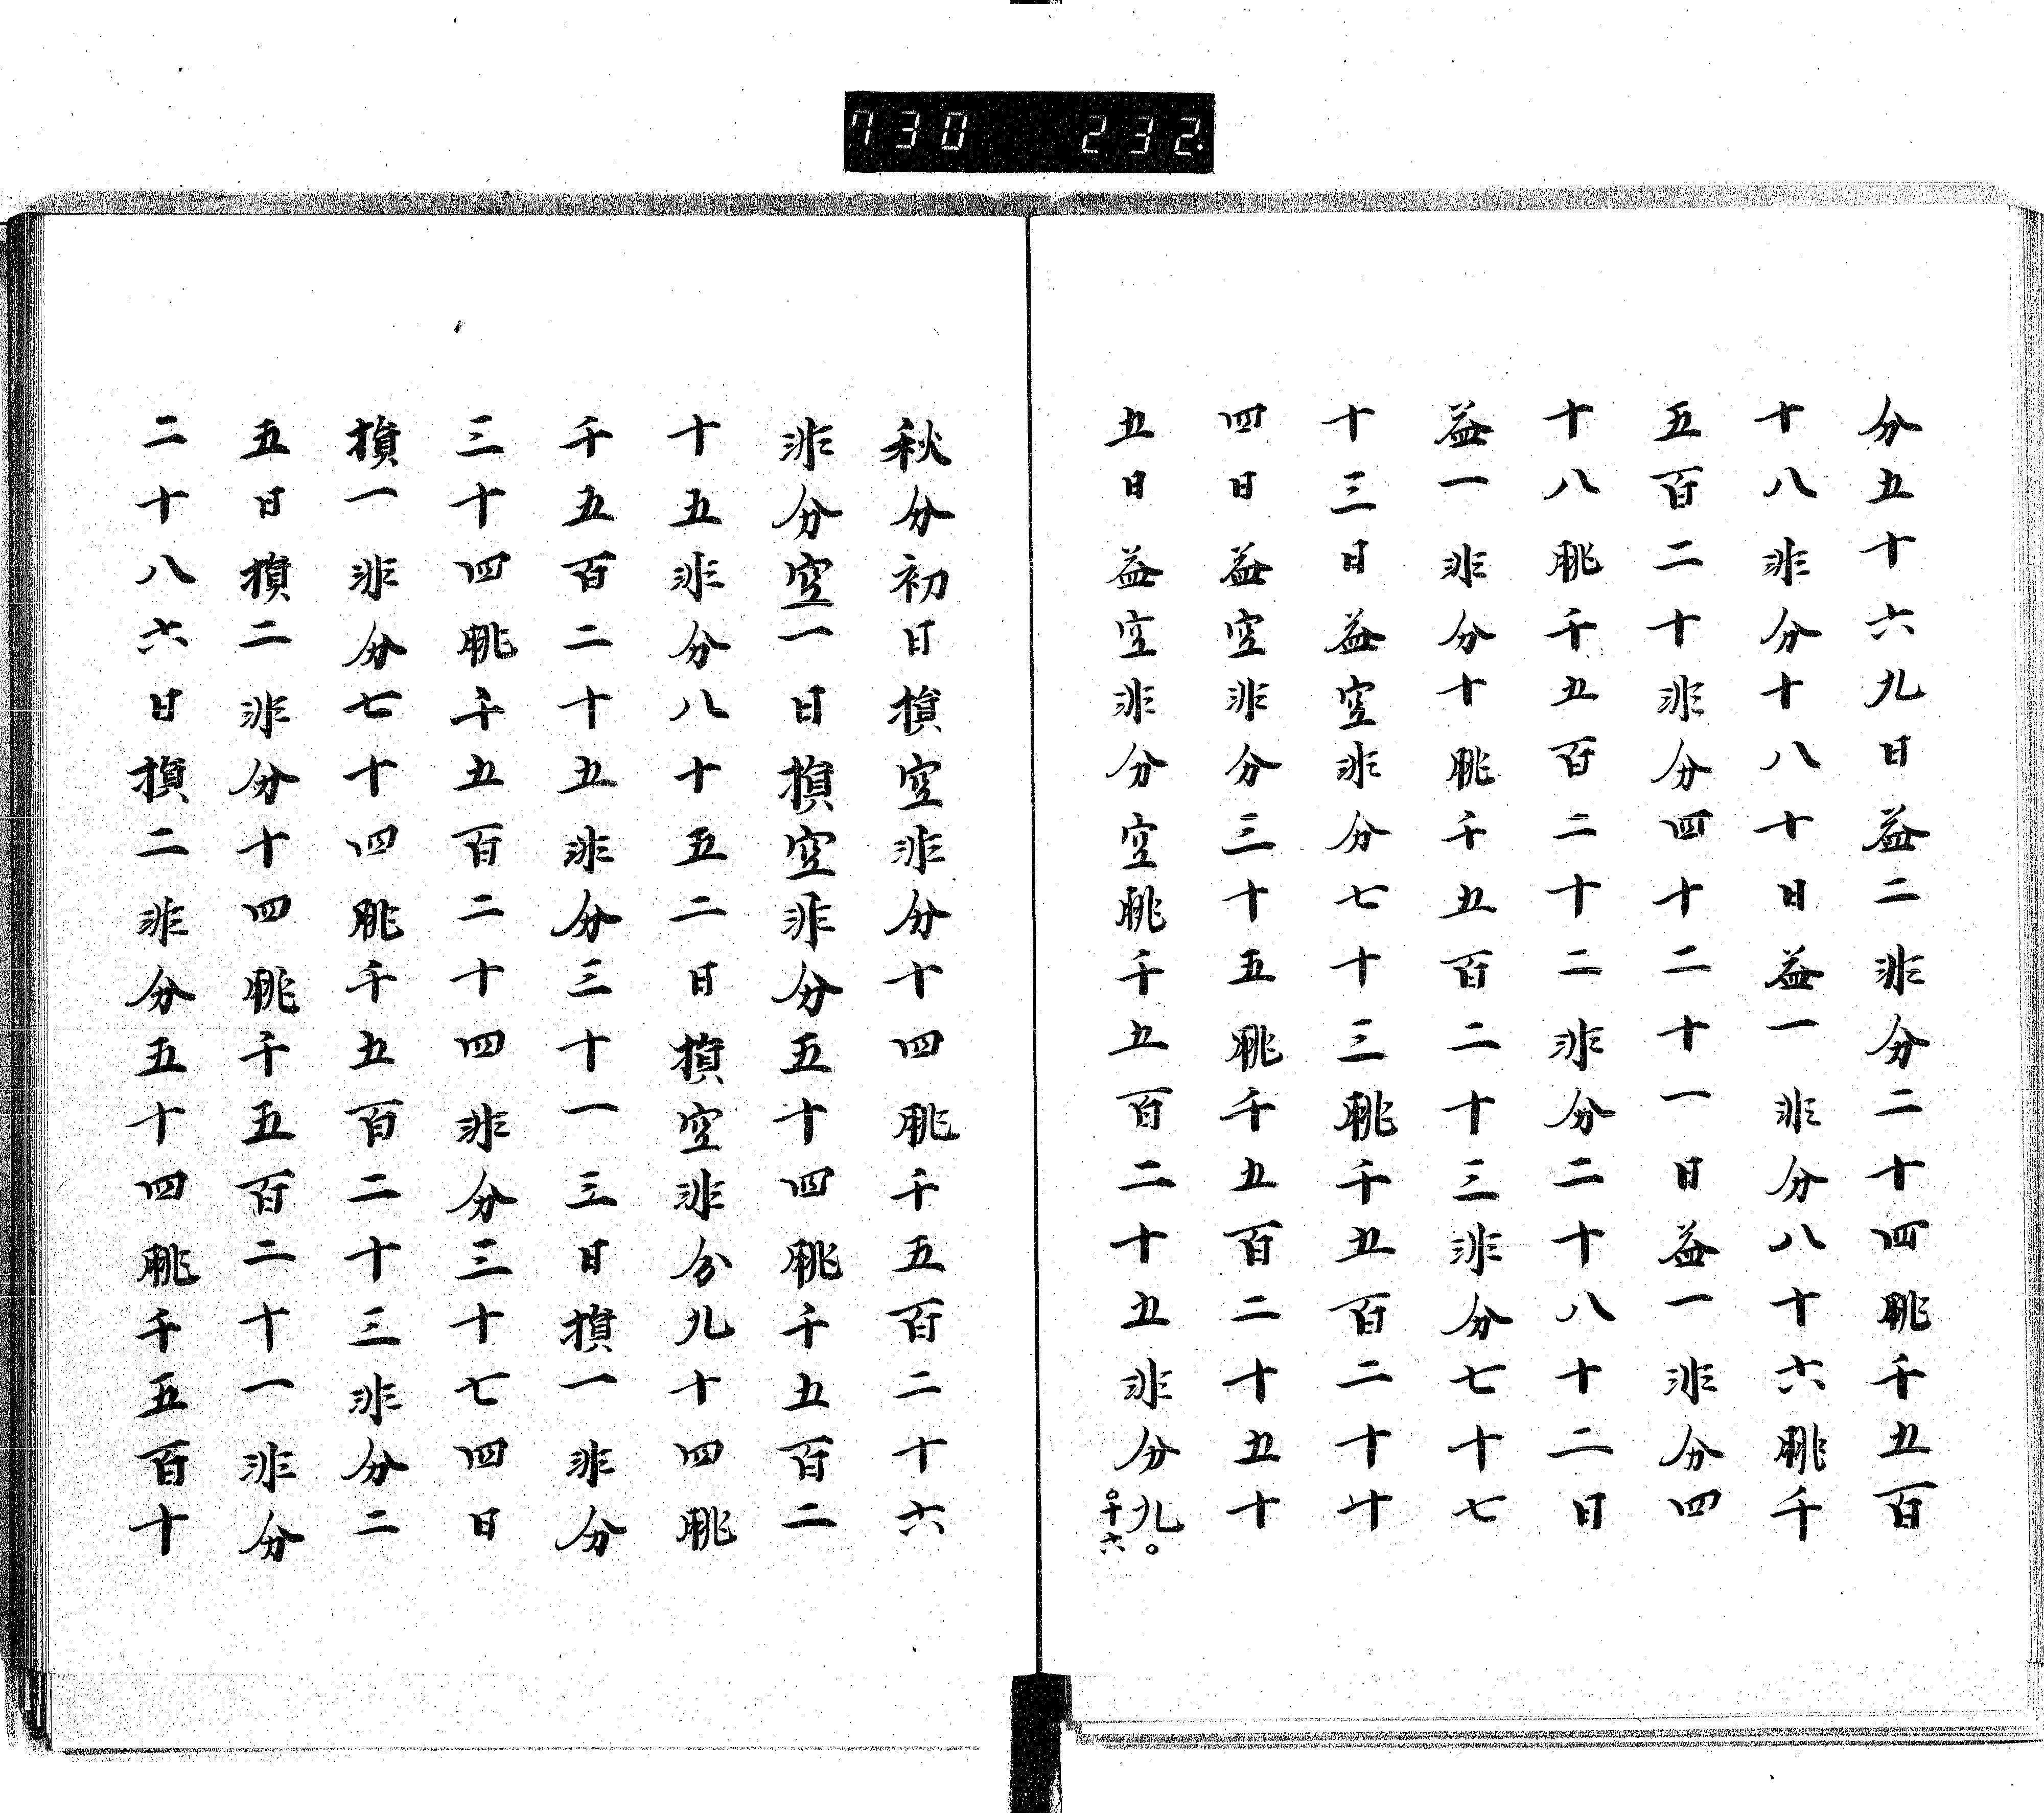 730 232.
分五十六九日益二非分二十四朓千五百
十八非分十八十日益一非分八十六朓千
五百二十非分四十二十一日益一非分四
十八朓千五百二十二非分二十八十二日
益一非分十朓千五百二十三非分七十七
十三日益空非分七十三朓千五百二十十
四日益空非分三十五朓千五百二十五十
五日益空非分空朓千五百二十五非分九十六
秋分初日損空非分十四朓千五百二十六
非分空一日損空非分五十四朓千五百二
十五非分八十五二日損空非分九十四朓
千五百二十五非分三十一三日損一非分
三十四朓千五百二十四非分三十七四日
損一非分七十四朓千五百二十三非分二
五日損二非分十四朓千五百二十一非分
二十八六日損二非分五十四朓千五百十